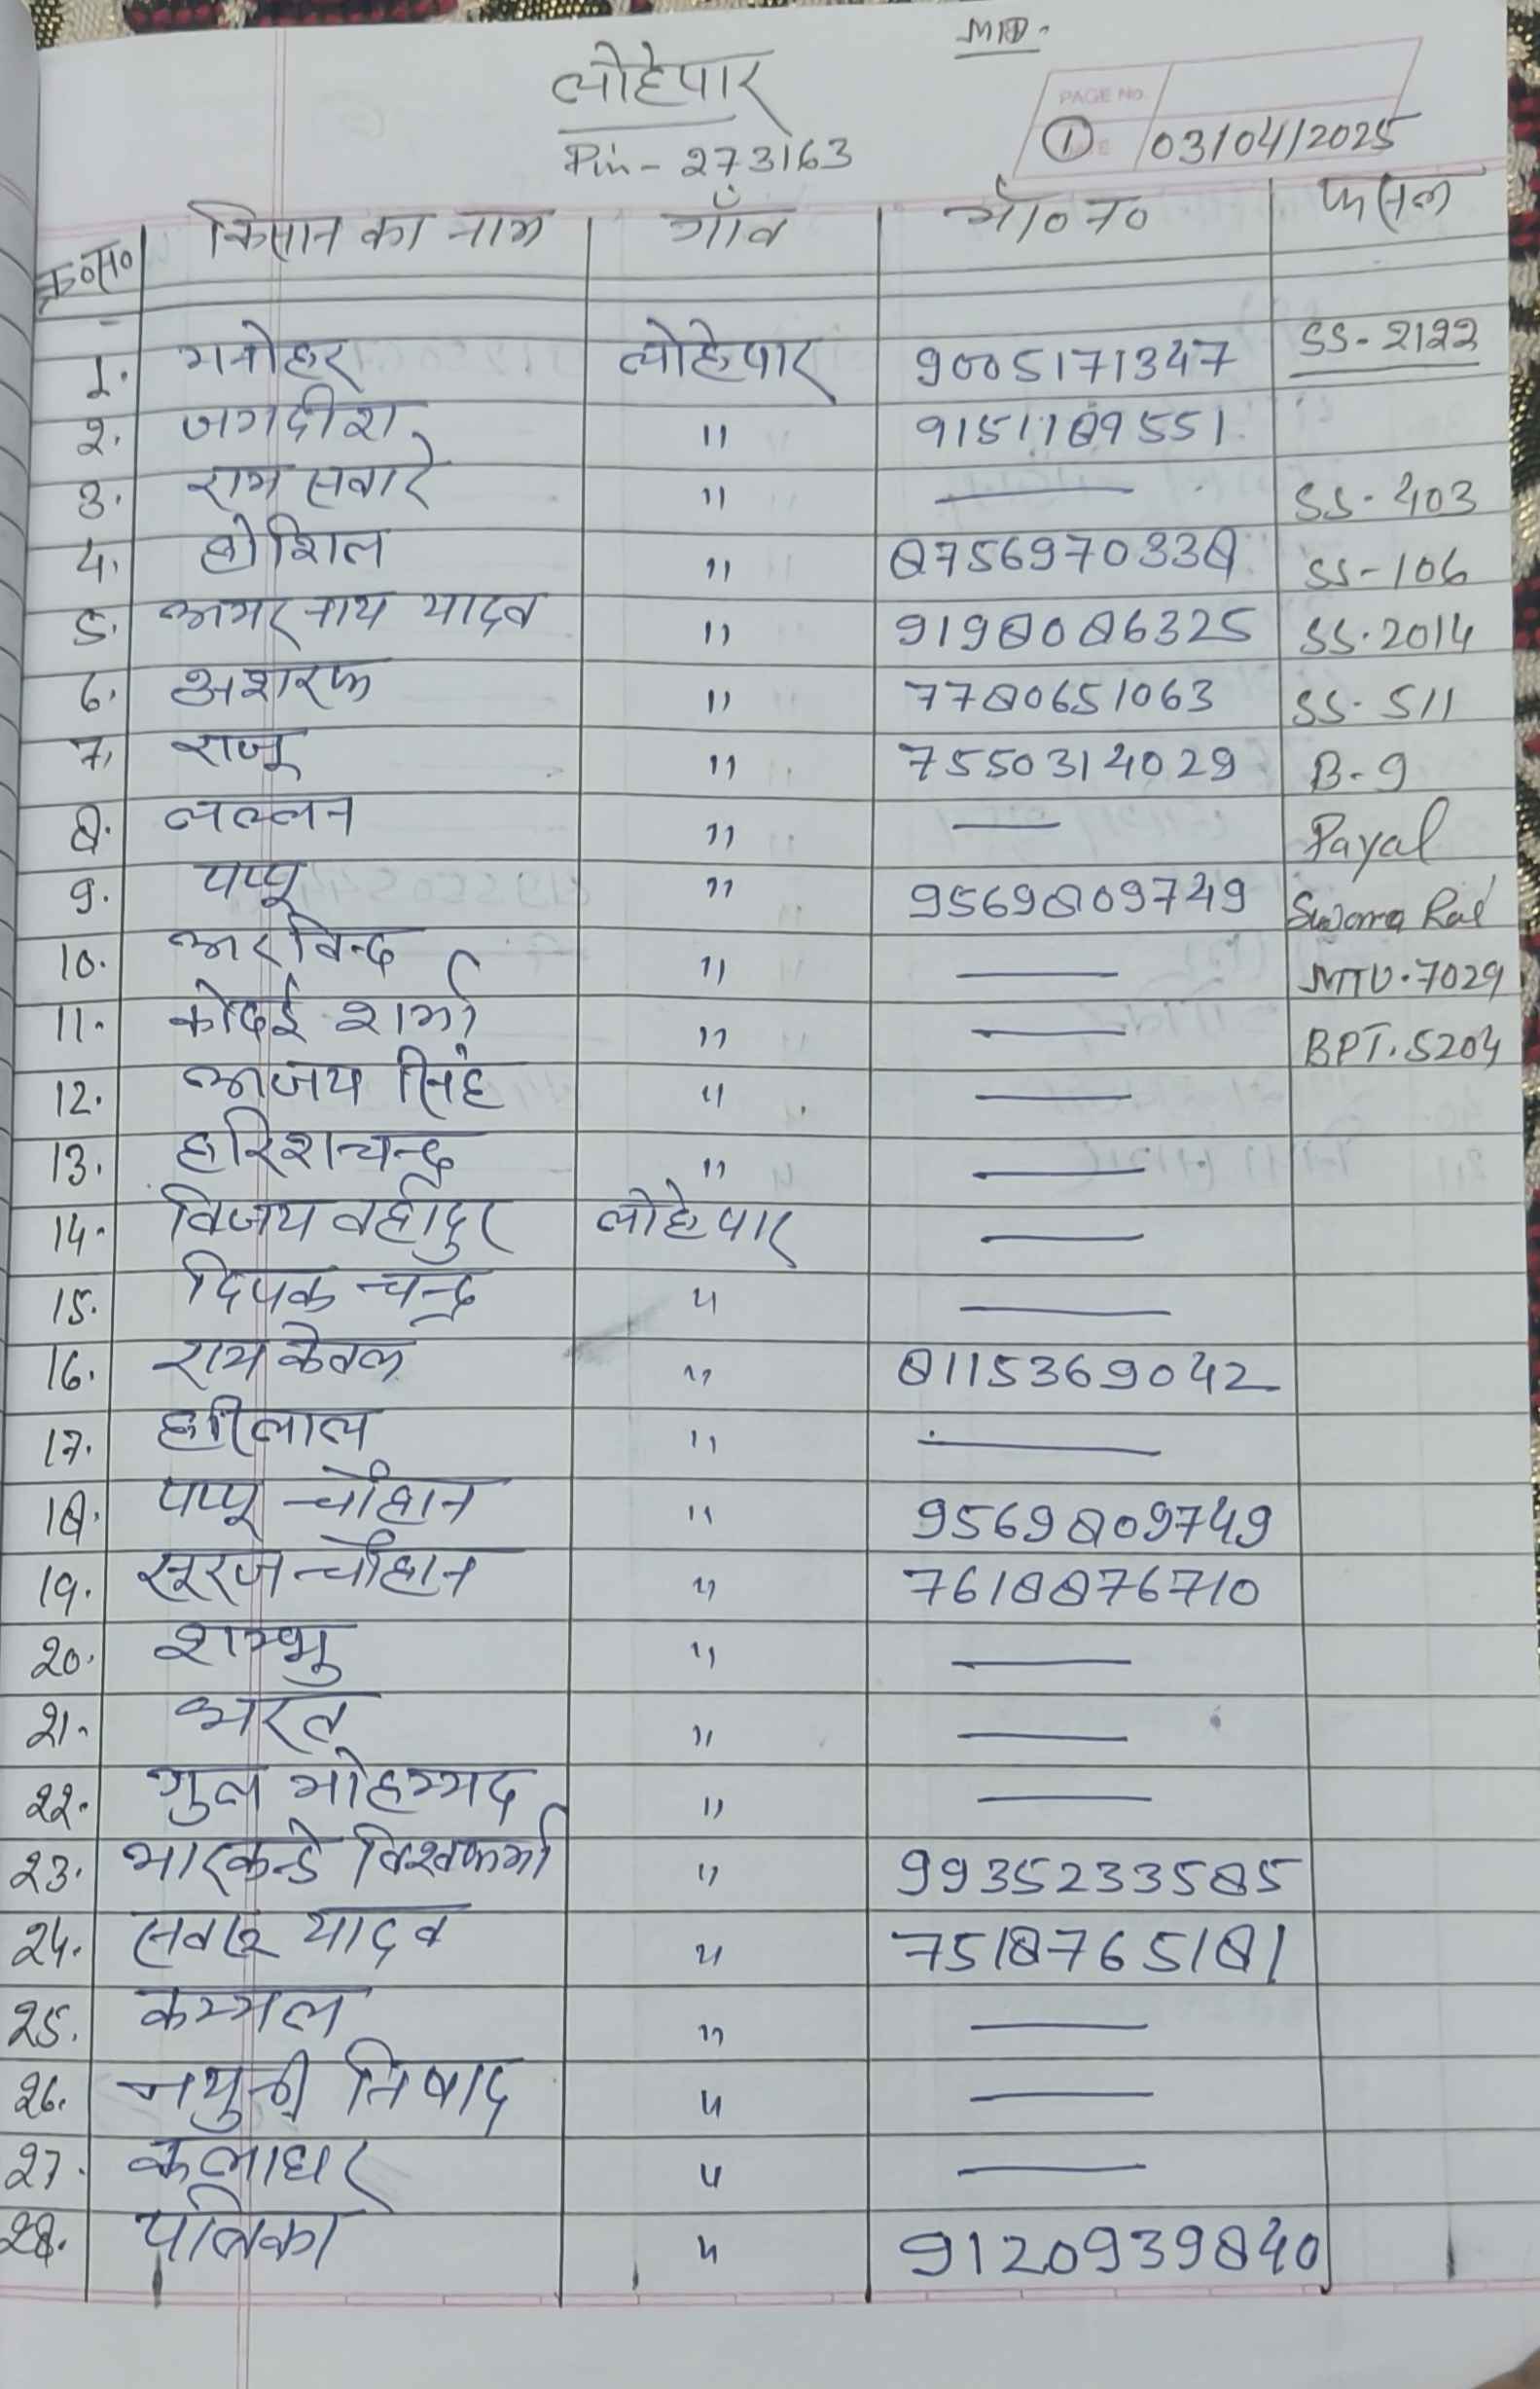 MTD.
लोहेपार
PAGE No.
Pin - 273163
① 03/04/2025
क्र०स० किसान का नाम गाँव मो० न० फसल
1. मनोहर लोहेपार 9005171347 SS-2122
2. जगदीश " 9151189551
3. राम सवारे " — SS-403
4. होशिल " 8756970338 SS-106
5. अमर नाथ यादव " 9198086325 SS.2014
6. अशरफ " 7780651063 SS-511
7. राजू " 7550314029 B-9
8. लल्लन " — Payal
9. पप्पू " 9569809749
10. अरविन्द " — MTU.7029
11. कोदई शर्मा " — BPT.5204
12. अजय सिंह " —
13. हरिशचन्द्र " —
14. विजय वहादुर लोहेपार —
15. दिपक चन्द्र " —
16. राम केवल " 8115369042
17. हरिलाल " —
18. पप्पू चौहान " 9569809749
19. सूरज चौहान " 7618876710
20. शम्भु " —
21. भरत " —
22. गुल मोहम्मद " —
23. मारकन्डे विश्वकर्मा " 9935233585
24. यादव " 7518765181
25. कम्मल " —
26. नथुनी निषाद " —
27. कलाधर " —
28. " 9120939840